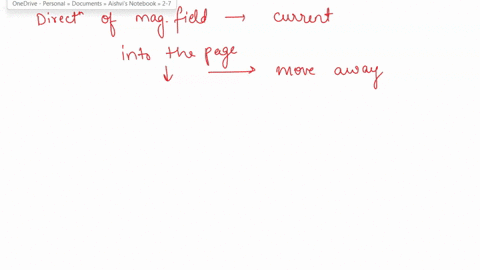 OneDrive - Personal » Documents » Aishvi's Notebook » 2-7
Directⁿ of mag. field → current
into the page
↓ → move away